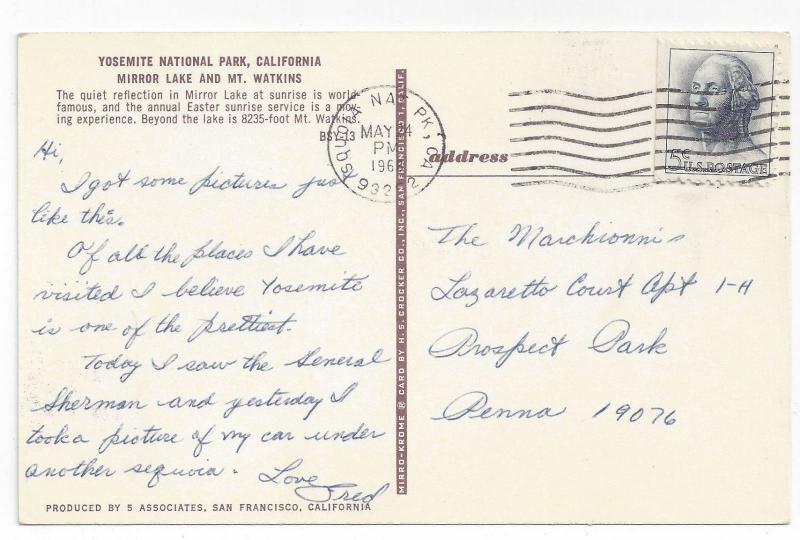 YOSEMITE NATIONAL PARK, CALIFORNIA
MIRROR LAKE AND MT. WATKINS
The quiet reflection in Mirror Lake at sunrise is world-
famous, and the annual Easter sunrise service is a mov-
ing experience. Beyond the lake is 8235-foot Mt. Watkins.
BSY-13
Hi,
I got some pictures just
like this.
Of all the places I have
visited I believe Yosemite
is one of the prettiest.
Today I saw the General
Sherman and yesterday I
took a picture of my car under
another sequoia.
Love
Fred
PRODUCED BY 5 ASSOCIATES, SAN FRANCISCO, CALIFORNIA
MIRRO-KROME ® CARD BY H. S. CROCKER CO., INC., SAN FRANCISCO 1, CALIF.
NAT PK, CA
MAY
PM
address
5c U.S. POSTAGE
The Marchionnis
Lazaretto Court Apt 1-H
Prospect Park
Penna 19076